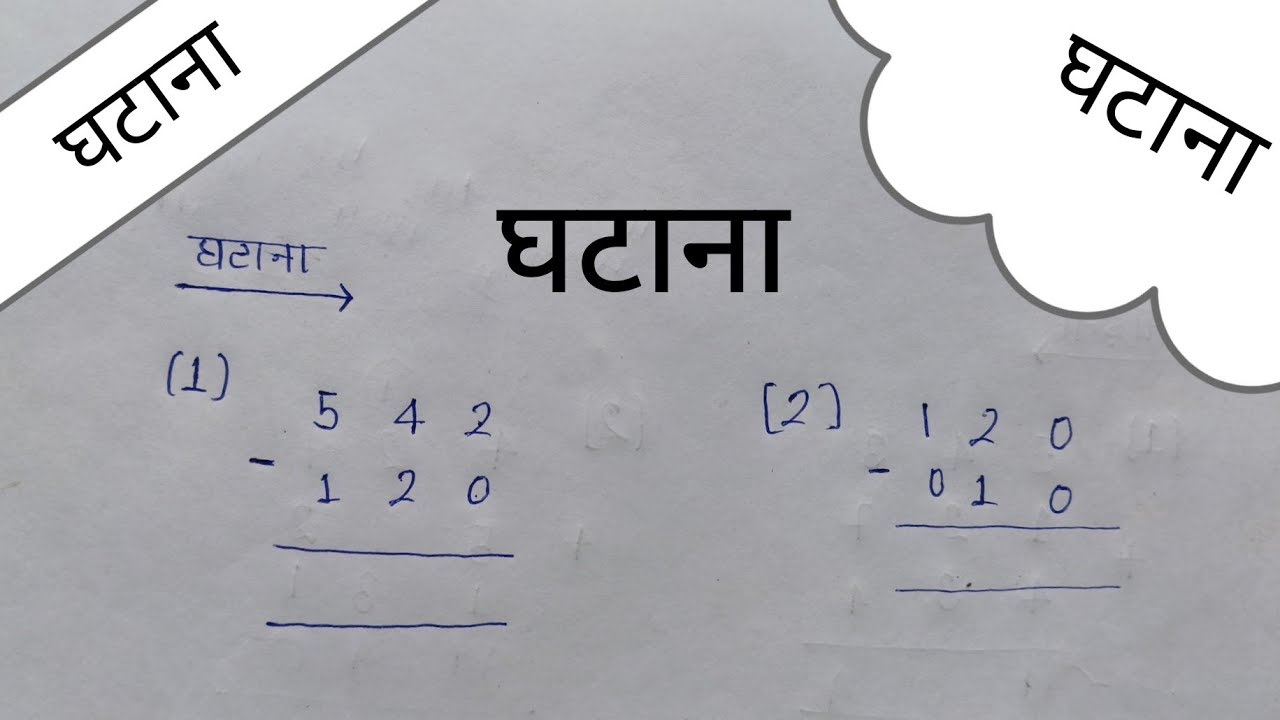 घटाना
घटाना
घटाना
घटाना
(1)
5 4 2
- 1 2 0
[2]
1 2 0
- 0 1 0